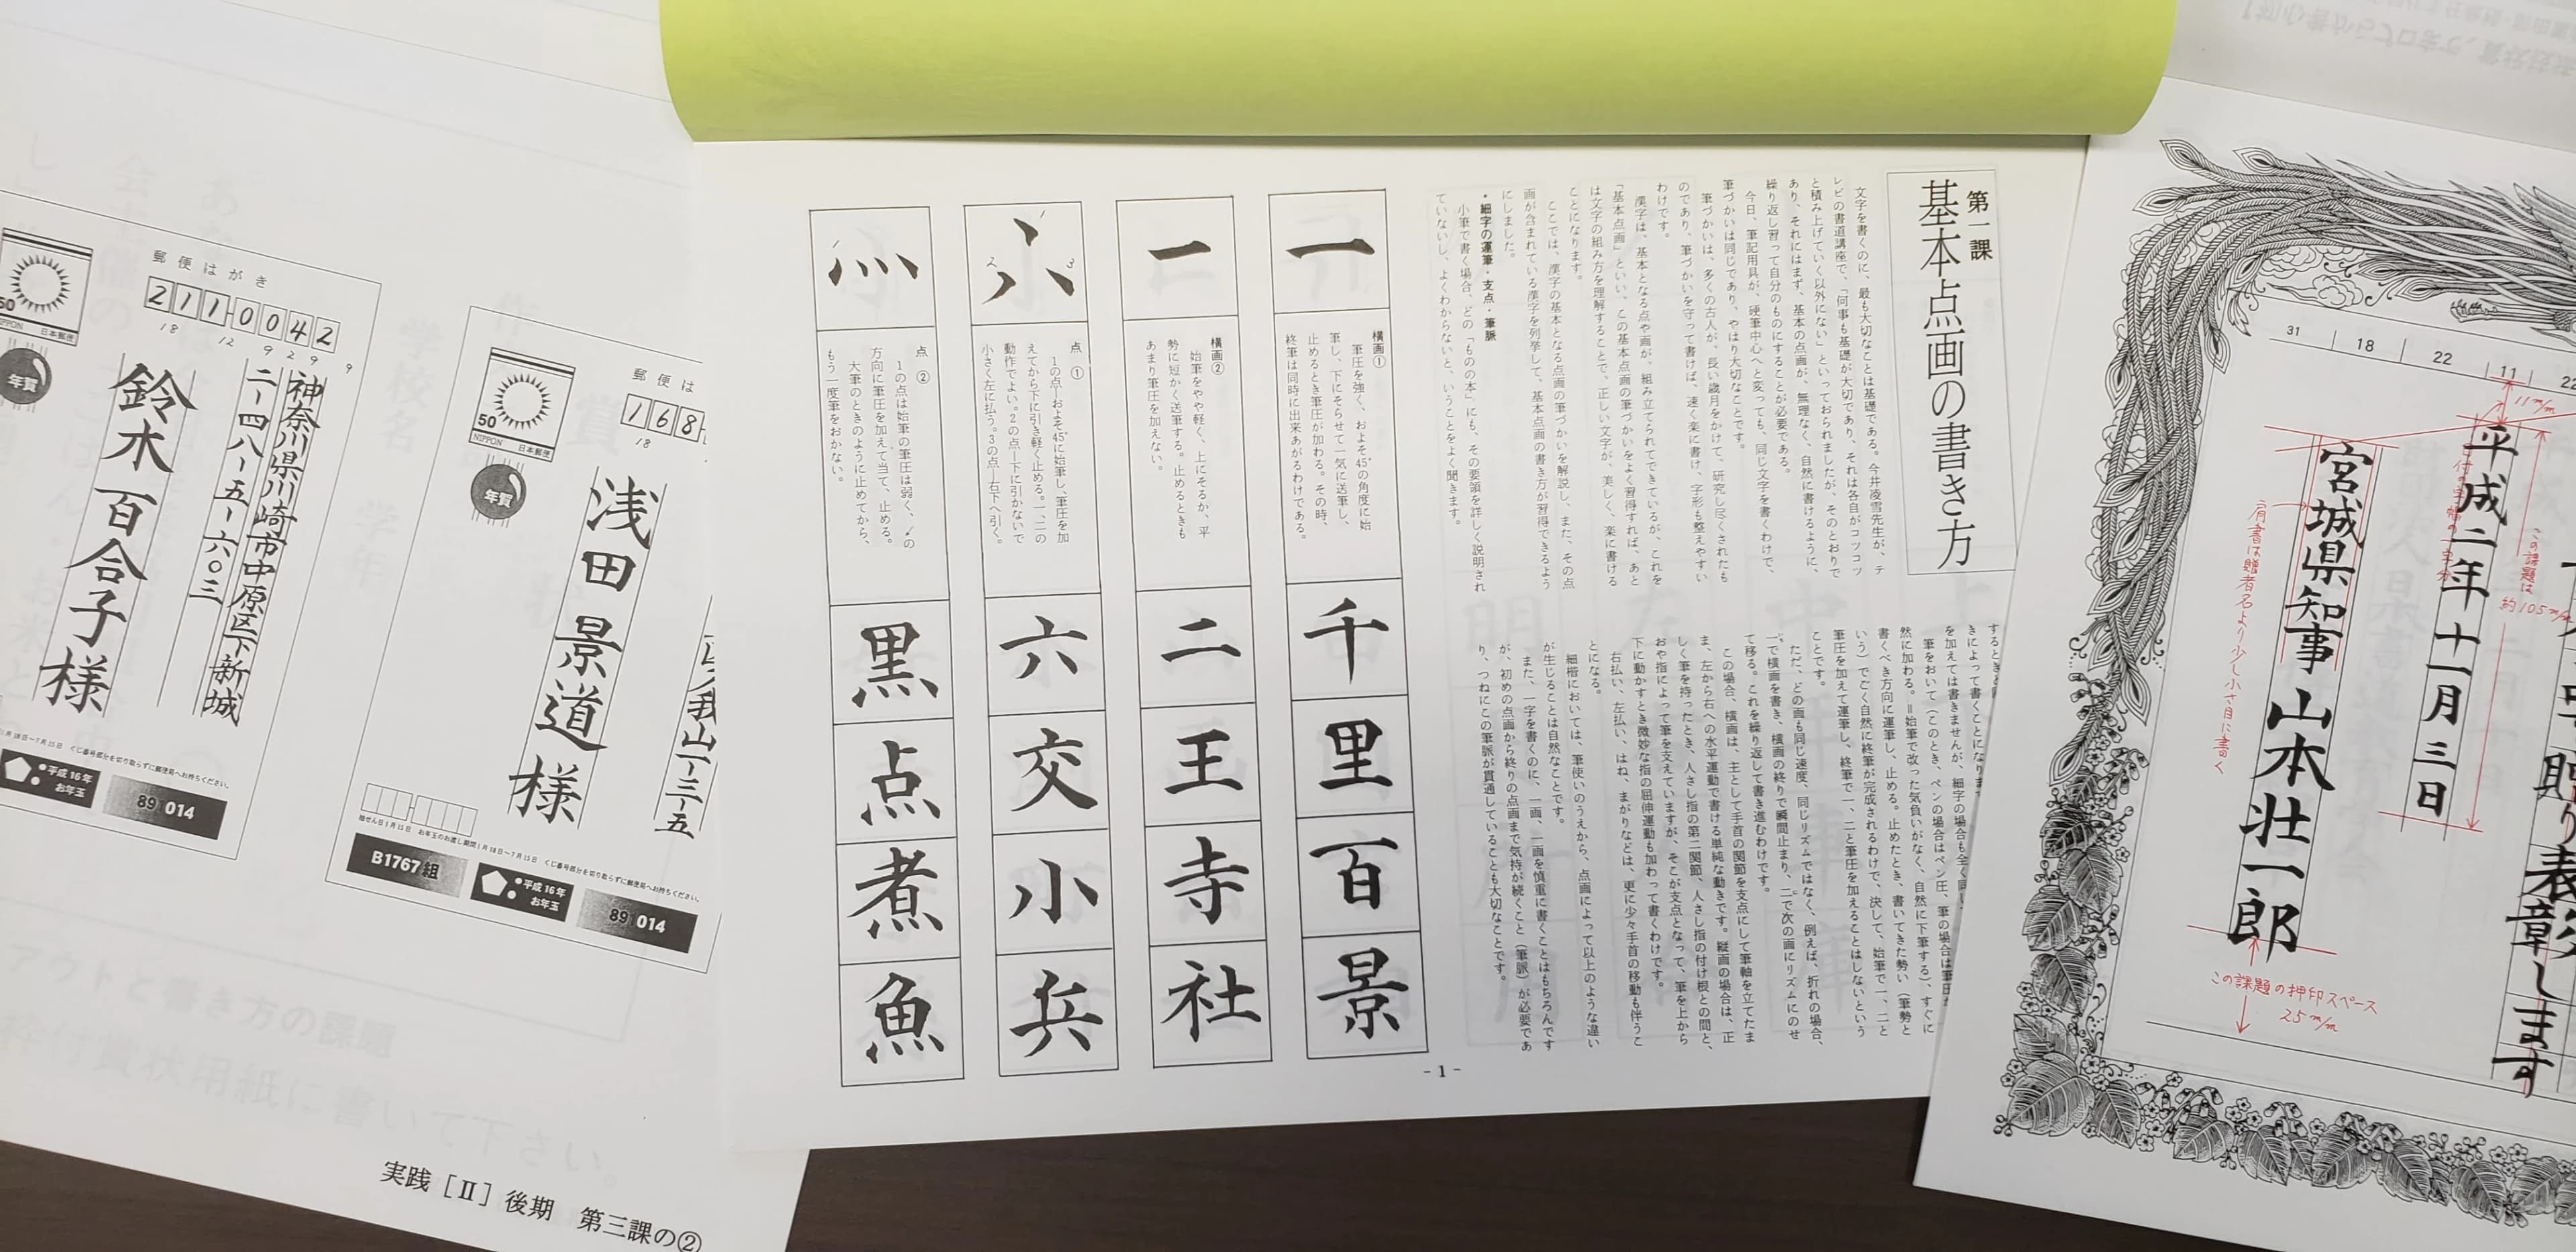 第一課
基本点画の書き方
文字を書くのに、最も大切なことは基礎である。今井凌雪先生が、テ
レビの書道講座で、「何事も基礎が大切であり、それは各自がコツコツ
と積み上げていく以外にない」といっておられましたが、そのとおりで
あり、それにはまず、基本の点画が、無理なく、自然に書けるように、
繰り返し習って自分のものにすることが必要である。
今日、筆記用具が、硬筆中心へと変っても、同じ文字を書くわけで、
筆づかいは同じであり、やはり大切なことです。
筆づかいは、多くの古人が、長い歳月をかけて、研究し尽くされたも
のであり、筆づかいを守って書けば、速く楽に書け、字形も整えやすい
わけです。
漢字は、基本となる点や画が、組み立てられてできているが、これを
「基本点画」といい、この基本点画の筆づかいをよく習得すれば、あと
は文字の組み方を理解することで、正しい文字が、美しく、楽に書ける
ことになります。
ここでは、漢字の基本となる点画の筆づかいを解説し、また、その点
画が含まれている漢字を列挙して、基本点画の書き方が習得できるよう
にしました。
・細字の運筆・支点・筆脈
小筆で書く場合、どの「ものの本」にも、その要領を詳しく説明され
ていないし、よくわからないと、いうことをよく聞きます。
を加えては書きませんが、細字の場合も全く同じ
筆をおいて（このとき、ペンの場合はペン圧、筆の場合は筆圧が
然に加わる。＝始筆で改った気負いがなく、自然に下筆する）、すぐに
書くべき方向に運筆し、止める。止めたとき、書いてきた勢い（筆勢と
いう）でごく自然に終筆が完成されるわけで、決して、始筆で一、二と
筆圧を加えて運筆し、終筆で一、二と筆圧を加えることはしないという
ことです。
ただ、どの画も同じ速度、同じリズムではなく、例えば、折れの場合、
一で横画を書き、横画の終りで瞬間止まり、二で次の画にリズムにのせ
て移る。これを繰り返して書き進むわけです。
この場合、横画は、主として手首の関節を支点にして筆軸を立てたま
ま、左から右への水平運動で書ける単純な動きです。縦画の場合は、正
しく筆を持ったとき、人さし指の第二関節、人さし指の付け根との間と、
おや指によって筆を支えていますが、そこが支点となって、筆を上から
下に動かすとき微妙な指の屈伸運動も加わって書くわけです。
右払い、左払い、はね、まがりなどは、更に少々手首の移動も伴うこ
とになる。
細楷においては、筆使いのうえから、点画によって以上のような違い
が生じることは自然なことです。
また、一字を書くのに、一画、一画を慎重に書くことはもちろんです
が、初めの点画から終りの点画まで気持が続くこと（筆脈）が必要であ
り、つねにこの筆脈が貫通していることも大切なことです。
一
横画①
筆圧を強く、およそ45°の角度に始
筆し、下にそらせて一気に送筆し、
止めるとき筆圧が加わる。その時、
終筆は同時に出来あがるわけである。
千里百景
一
横画②
始筆をやや軽く、上にそるか、平
勢に短かく送筆する。止めるときも
あまり筆圧を加えない。
二王寺社
1
2
3
点①
1の点―およそ45°に始筆し、筆圧を加
えてから下に引き軽く止める。一、二の
動作でよい。2の点―下に引かないで
小さく左に払う。3の点―右下へ引く。
六交小兵
点②
1の点は始筆の筆圧は弱く、↙の
方向に筆圧を加えて当て、止める。
大筆のときのように止めてから、
もう一度筆をおかない。
黒点煮魚
- 1 -
郵便はがき
211-0042
18
12
9
2
9
9
50
NIPPON 日本郵便
年賀
神奈川県川崎市中原区下新城
二ー四八ー五ー六〇三
鈴木百合子様
平成16年
お年玉
89 014
郵便は
168
18
50
NIPPON 日本郵便
年賀
我山一ー三ー五
浅田景道様
抽せん日1月15日 お年玉のお渡し期間1月18日〜7月15日 くじ番号部分を切り取らずに郵便局へお持ちください。
B1767組
平成16年
お年玉
89 014
実践［Ⅱ］後期 第三課の②
31
18
22
11
22
11m/m
表彰します
この課題は
約105m/m
平成二年十一月三日
宮城県知事 山本壮一郎
肩書は贈者名より少し小さ目に書く
この課題の押印スペース
25m/m